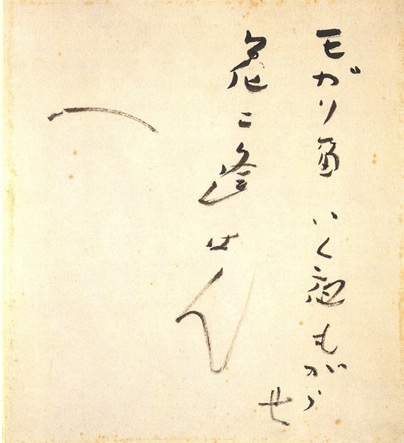 モガリ笛 いく夜もがらせ
花ニ逢はん
一